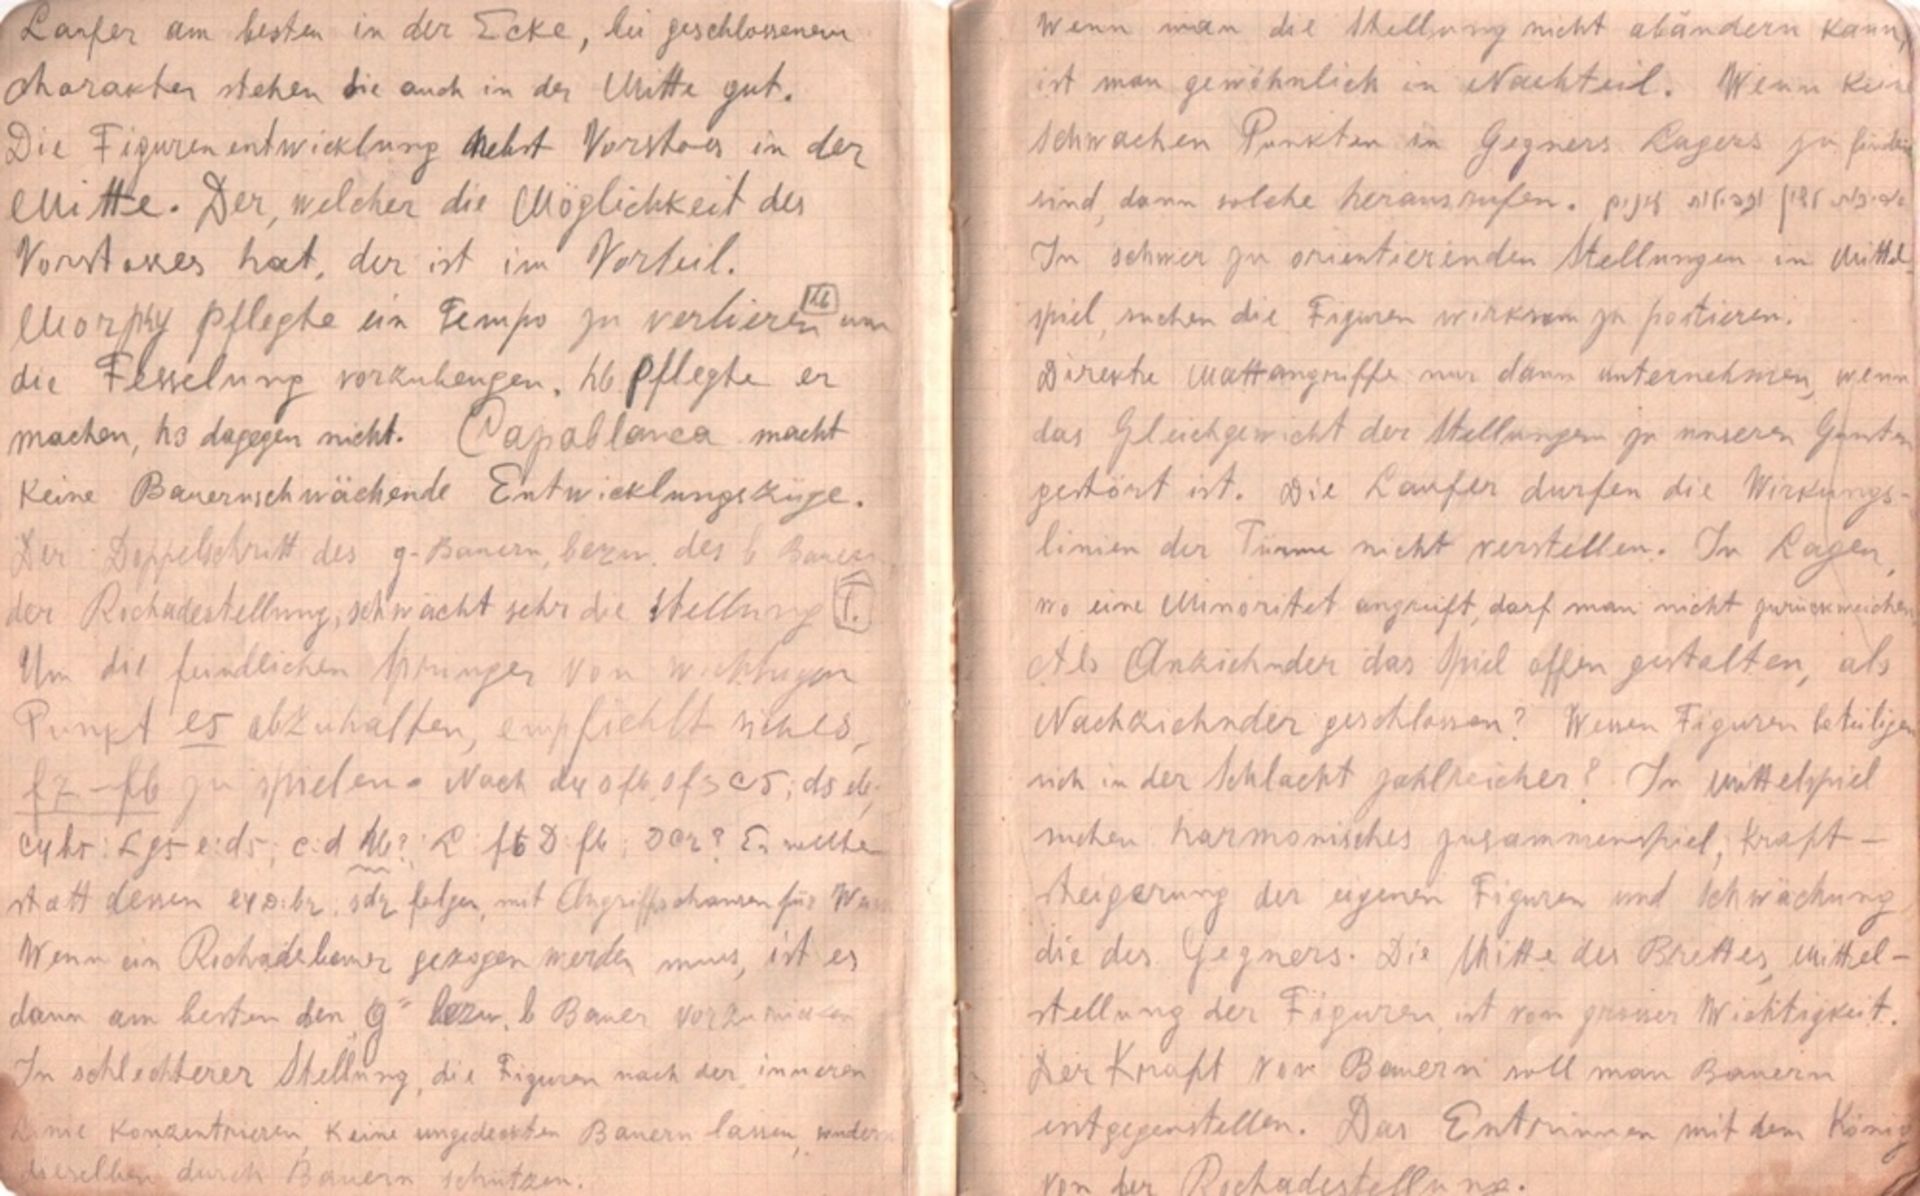 Laufer am besten in der Ecke, bei geschlossenem
charakter stehen sie auch in der Mitte gut.
Die Figurenentwicklung nebst Vorstoss in der
Mitte. Der, welcher die Möglichkeit des
Vorstosses hat, der ist im Vorteil.
Morphy pflegte ein Tempo zu verlieren um
die Fesselung vorzubeugen. h6 pflegte er
machen, h3 dagegen nicht. Capablanca macht
keine Bauernschwächende Entwicklungszüge.
Der Doppelschritt des g-Bauern, bezw. des b Bauern
der Rochadestellung, schwächt sehr die Stellung I.
Um die feindlichen Springer von wichtigen
Punkt e5 abzuhalten, empfiehlt sich es,
f7-f6 zu spielen. Nach d4 Sf6, Sf3 c5; d5 d6;
c4 h5: Lg5 e:d5; c:d h6?; L f6 D:f6; Dc2? Es sollte
statt dessen e4 D:b2, Sd2 folgen, mit Angriffschansen für Weiss
Wenn ein Rochadebauer gezogen werden muss, ist es
dann am besten den g- bezw. b Bauer vorzurücken
In schlechterer Stellung, die Figuren nach der inneren
Linie konzentrieren, keine ungedeckten Bauern lassen, sondern
dieselben durch Bauern schützen.
Wenn man die Stellung nicht abändern kann,
ist man gewöhnlich in Nachteil. Wenn keine
schwachen Punkten in Gegners Lagers zu finden
sind, dann solche herausrufen.
In schwer zu orientierenden Stellungen in Mittel-
spiel, suchen die Figuren wirksam zu postieren.
Direkte Mattangriffe nur dann unternehmen, wenn
das Gleichgewicht der Stellungen zu unseren Gunsten
gestört ist. Die Laufer durfen die Wirkungs-
linien der Türme nicht verstellen. In Lagen,
wo eine Minoritet angreift, darf man nicht zurückweichen
Als Anziehnder das Spiel offen gestalten, als
Nachziehnder geschlossen? Wessen Figuren beteiligen
sich in der Schlacht zahlreicher? In Mittelspiel
suchen harmonisches zusammenspiel, Kraft-
steigerung der eigenen Figuren und Schwächung
die des Gegners. Die Mitte des Brettes, Mittel-
stellung der Figuren, ist von grosser Wichtigkeit.
Der Kraft von Bauern soll man Bauern
entgegenstellen. Das Entrinnen mit dem König
von der Rochadestellung.